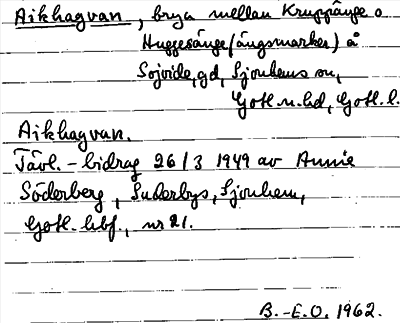 Aikhagvan, brya mellan Kruppänge o
Huggesänge (ängsmarker) å
Sojvide, gd, Sjonhems sn,
Gotl. n. hd, Gotl. l.
Aikhagvan.
Tävl.-bidrag 26/3 1949 av Annie
Söderberg, Suderbys, Sjonhem,
Gotl. hbf., nr 21.
B.-E.O. 1962.